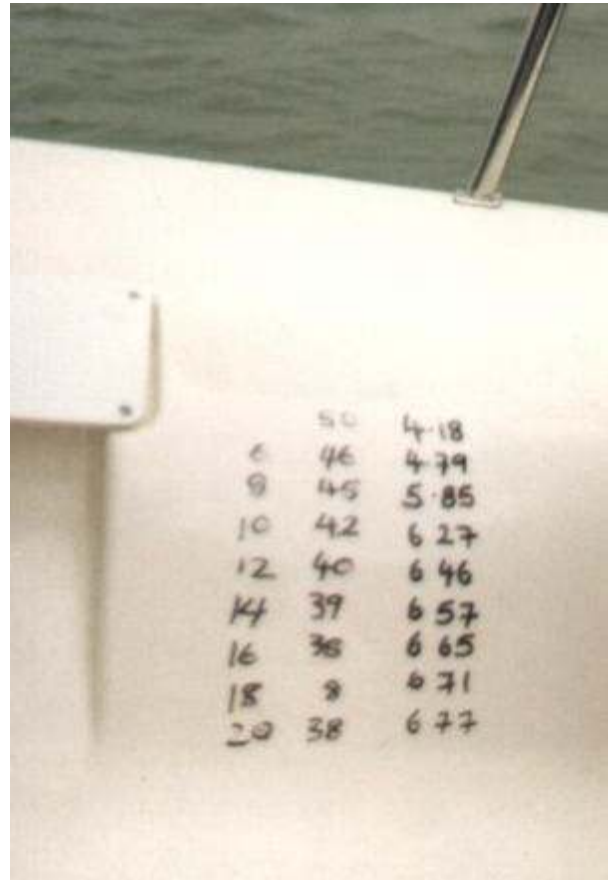 50 4.18
6 46 4.79
8 45 5.85
10 42 6 27
12 40 6 46
14 39 6 57
16 38 6 65
18 8 6 71
20 38 6 77